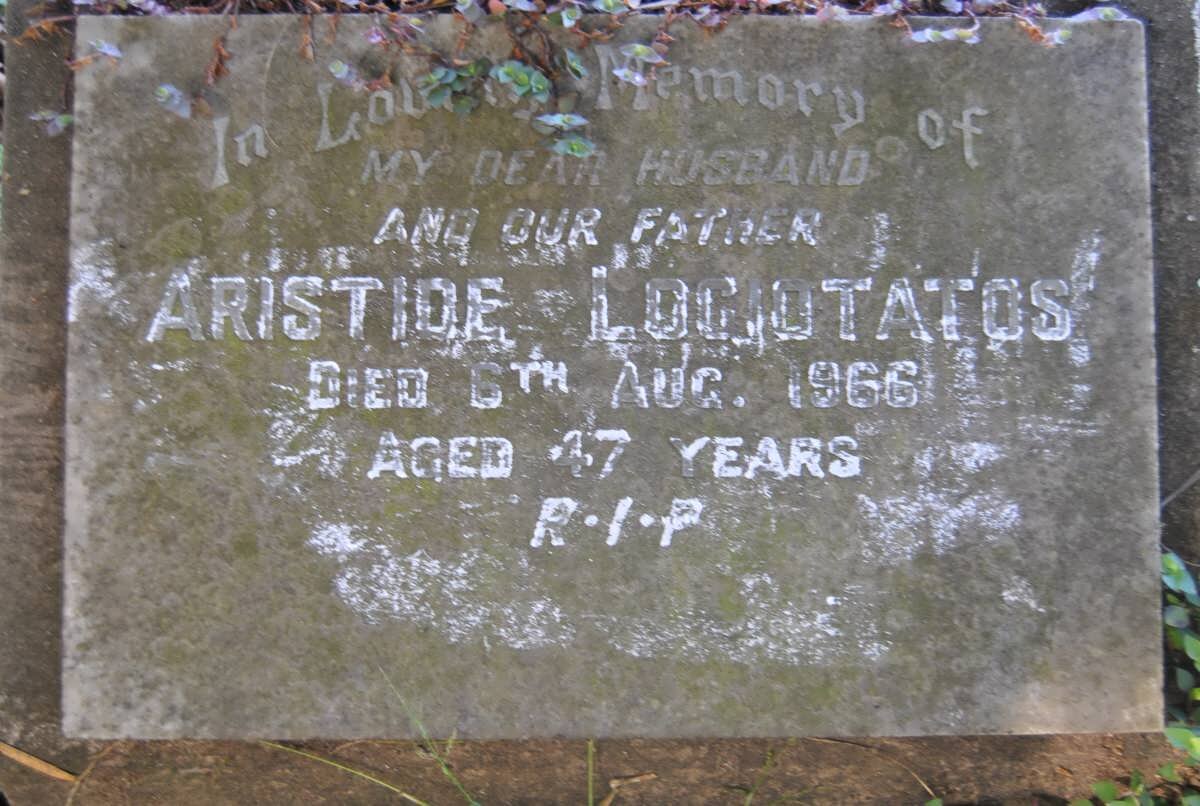 In Loving Memory of
MY DEAR HUSBAND
AND OUR FATHER
ARISTIDE LOGIOTATOS
DIED 6TH AUG. 1966
AGED 47 YEARS
R·I·P